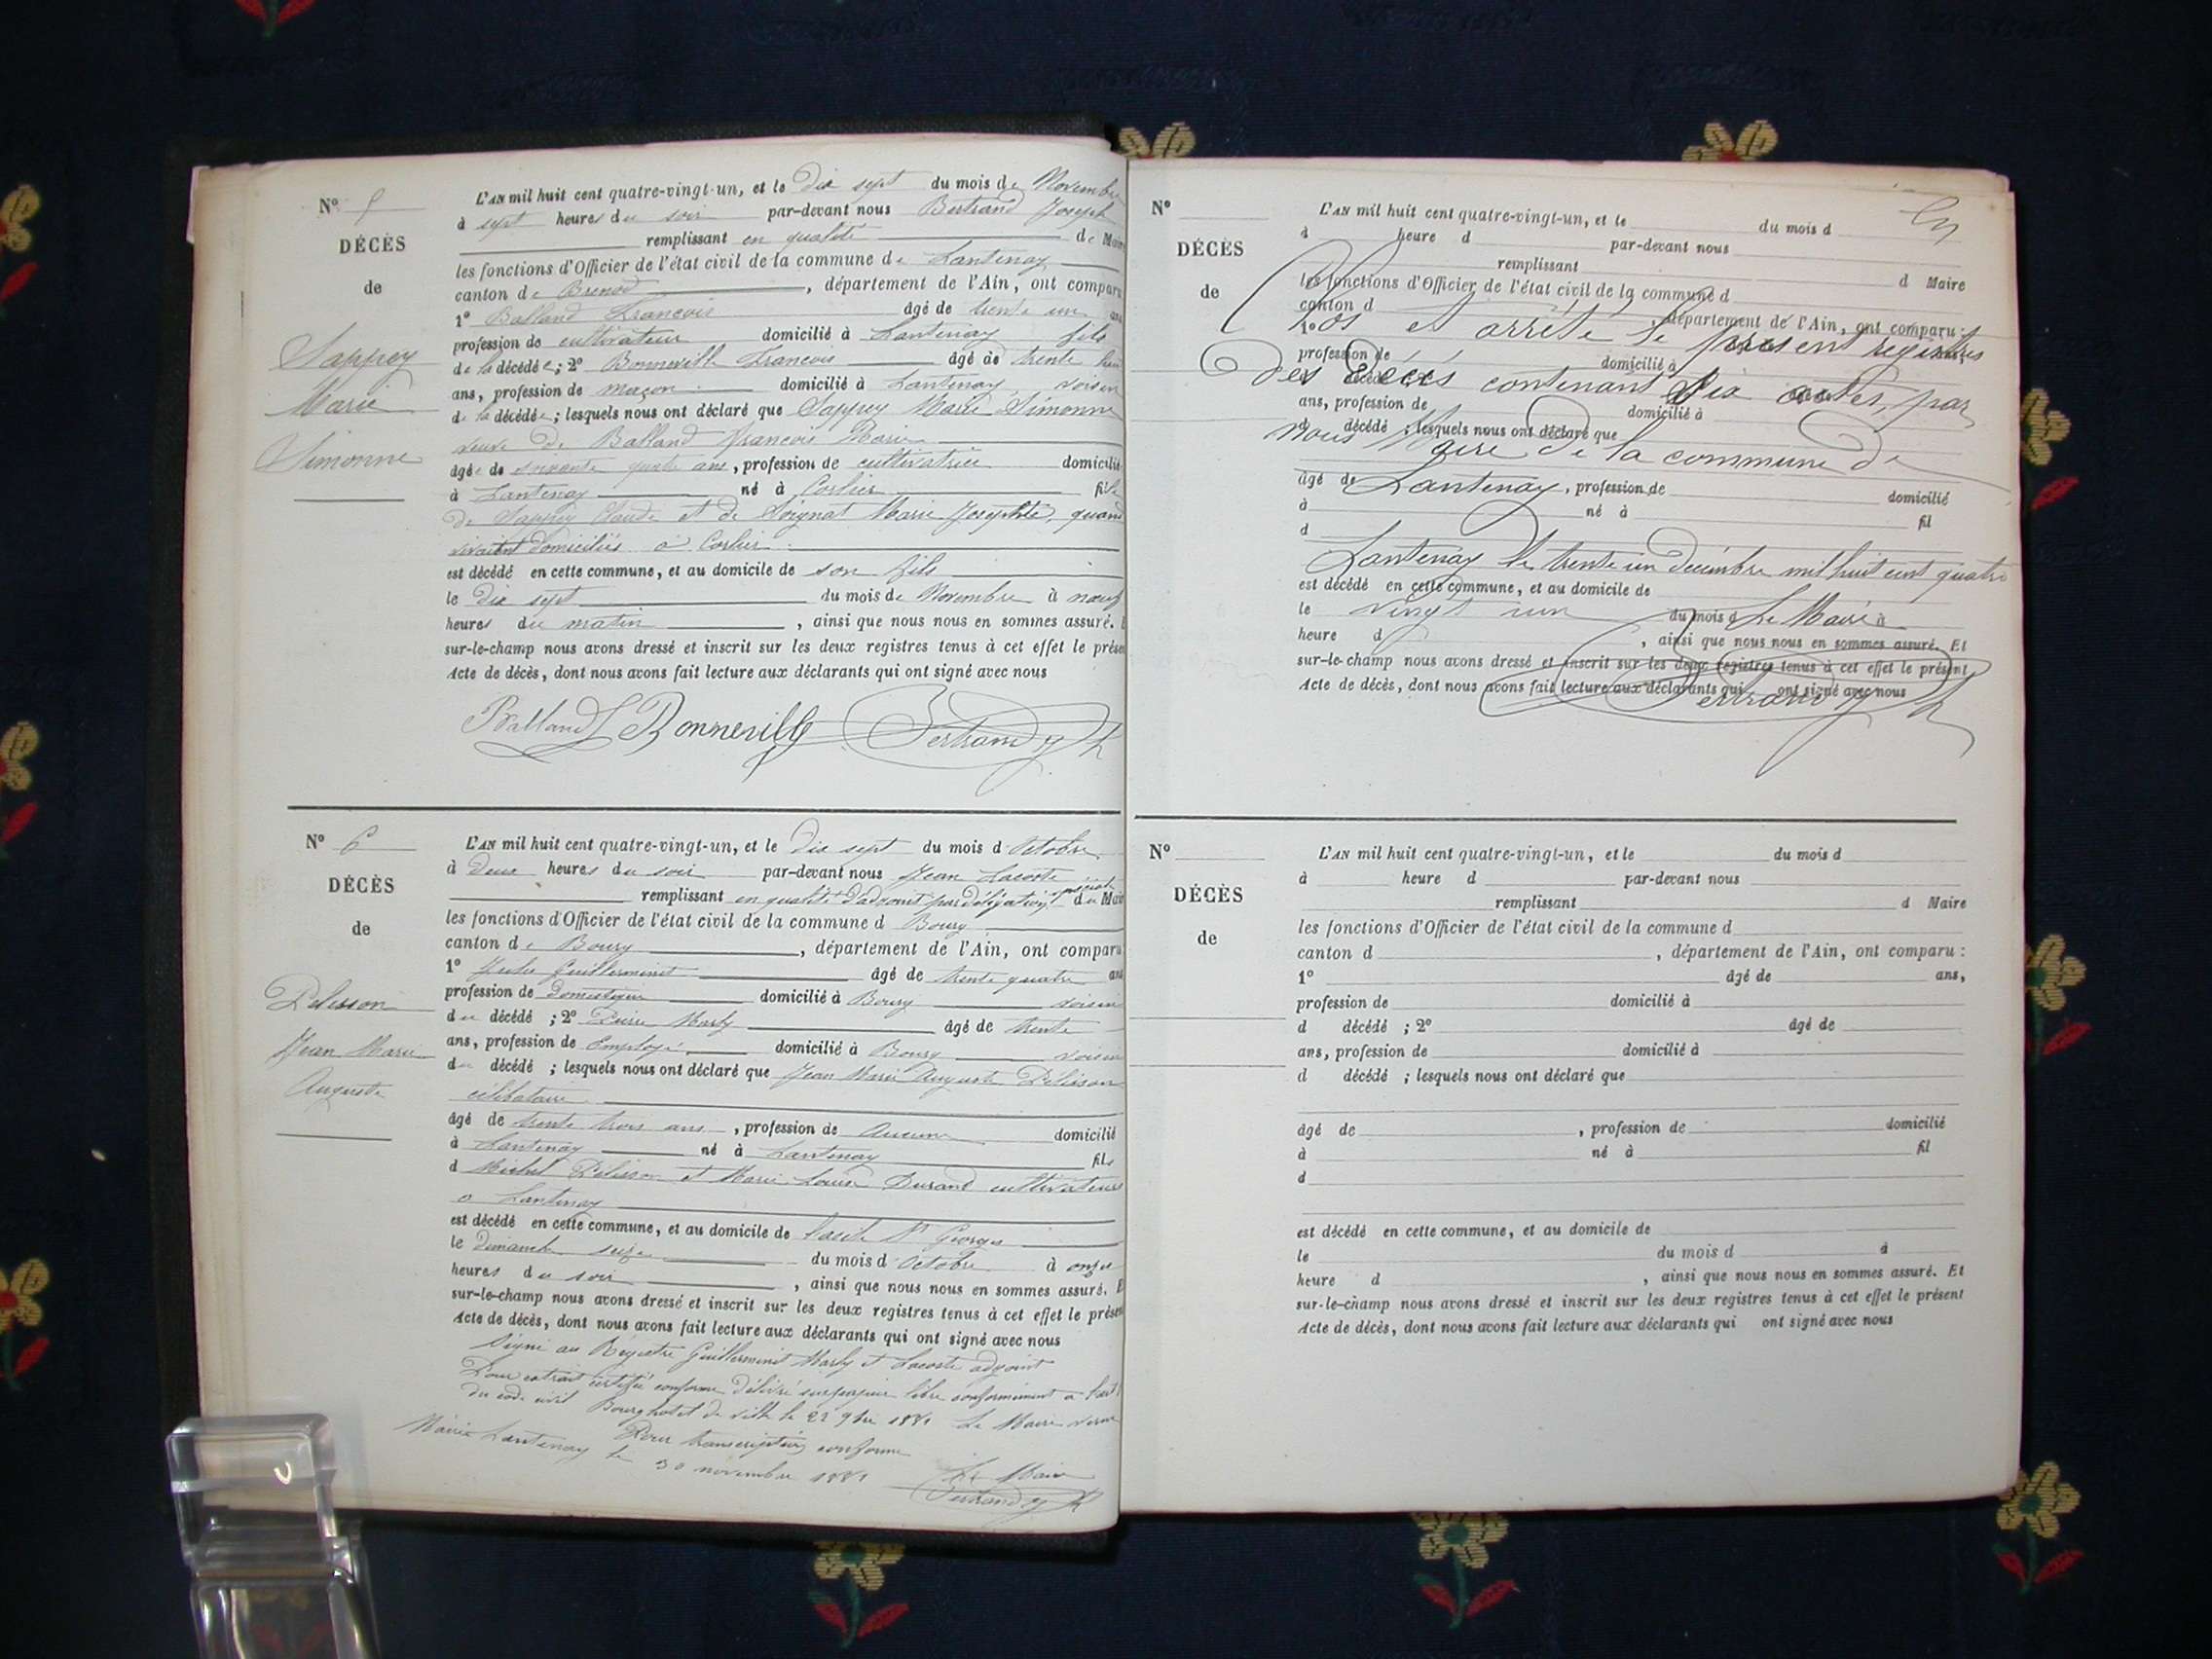 Nº 5
DÉCÈS
de
Sappey
Marie
Simonne
L'AN mil huit cent quatre-vingt-un, et le Dix sept du mois de Novembre
à sept heures du soir par-devant nous Bertrand Joseph
remplissant en qualité de Maire
les fonctions d'Officier de l'état civil de la commune de Lantenay
canton de Brenod, département de l'Ain, ont comparu
1º Balland Francois âgé de trente un ans
profession de cultivateur domicilié à Lantenay fils
de la décédée; 2º Bonneville Francois âgé de trente huit
ans, profession de maçon domicilié à Lantenay, voisin
de la décédée; lesquels nous ont déclaré que Sappey Marie Simonne
veuve de Balland francois Marie
âgée de soixante quatre ans, profession de cultivatrice domicilié
à Lantenay né à Corlier fille
de Sappey Claude et de Marie Josephte, quand
vivaient domiciliés à Corlier
est décédé en cette commune, et au domicile de son fils
le Dix sept du mois de Novembre à neuf
heures du matin, ainsi que nous nous en sommes assuré. E
sur-le-champ nous avons dressé et inscrit sur les deux registres tenus à cet effet le présen
Acte de décès, dont nous avons fait lecture aux déclarants qui ont signé avec nous
Balland f Bonneville Bertrand jh
Nº 6
DÉCÈS
de
Pelisson
Jean Marie
Auguste
L'AN mil huit cent quatre-vingt-un, et le Dix sept du mois d'Octobre
à Deux heures du soir par-devant nous Jean Lacoste
remplissant en qualité d'adjoint par délégation spéciale du Maire
les fonctions d'Officier de l'état civil de la commune d Bourg
canton de Bourg, département de l'Ain, ont comparu
1º Jules Guillerminet âgé de trente quatre ans
profession de Domestique domicilié à Bourg voisin
du décédé; 2º Pierre Marly âgé de trente
ans, profession de Employé domicilié à Bourg voisin
du décédé; lesquels nous ont déclaré que Jean Marie Auguste Pélisson
célibataire
âgé de trente trois ans, profession de Aucune domicilié
à Lantenay né à Lantenay fils
d Michel Pelisson et Marie Louise Durand cultivateurs
a Lantenay
est décédé en cette commune, et au domicile de l'asile St Georges
le Dimanche seize du mois d'Octobre à onze
heures du soir, ainsi que nous nous en sommes assuré. E
sur-le-champ nous avons dressé et inscrit sur les deux registres tenus à cet effet le présen
Acte de décès, dont nous avons fait lecture aux déclarants qui ont signé avec nous
Signé au Régistre Guillerminet Marly et Lacoste adjoint
Pour extrait certifié conforme délivré sur papier libre conformément a l'art
du code civil Bourg hotel de ville le 22 9bre 1881 Le Maire
Pour transcription conforme
Mairie Lantenay le 30 novembre 1881
Le Maire
Bertrand jh
Nº
DÉCÈS
de
L'AN mil huit cent quatre-vingt-un, et le du mois d
à heure d par-devant nous
remplissant d Maire
les fonctions d'Officier de l'état civil de la commune d
canton d, département de l'Ain, ont comparu :
Clos et arrêté le présent registres
1º
profession de domicilié à
des Décès contenant Six actes, par
ans, profession de domicilié à
d décédé ; lesquels nous ont déclaré que
nous Maire de la commune de
âgé de, profession de domicilié
Lantenay
à né à fil
d
Lantenay le trente un décembre mil huit cent quatre
est décédé en cette commune, et au domicile de
le du mois d à
vingt un Le Maire
heure d, ainsi que nous nous en sommes assuré. Et
sur-le-champ nous avons dressé et inscrit sur les deux registres tenus à cet effet le présent
Acte de décès, dont nous avons fait lecture aux déclarants qui ont signé avec nous
Bertrand jh
Nº
DÉCÈS
de
L'AN mil huit cent quatre-vingt-un, et le du mois d
à heure d par-devant nous
remplissant d Maire
les fonctions d'Officier de l'état civil de la commune d
canton d, département de l'Ain, ont comparu :
1º âgé de ans,
profession de domicilié à
d décédé ; 2º âgé de
ans, profession de domicilié à
d décédé ; lesquels nous ont déclaré que
âgé de, profession de domicilié
à né à fil
d
est décédé en cette commune, et au domicile de
le du mois d à
heure d, ainsi que nous nous en sommes assuré. Et
sur-le-champ nous avons dressé et inscrit sur les deux registres tenus à cet effet le présent
Acte de décès, dont nous avons fait lecture aux déclarants qui ont signé avec nous